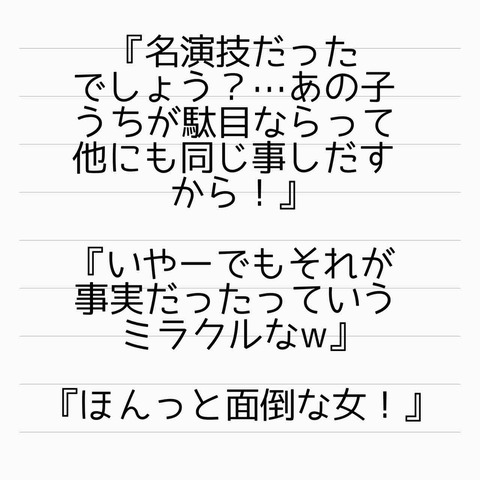 『名演技だった
でしょう？…あの子
うちが駄目ならって
他にも同じ事しだす
から！』
『いやーでもそれが
事実だったっていう
ミラクルなw』
『ほんっと面倒な女！』